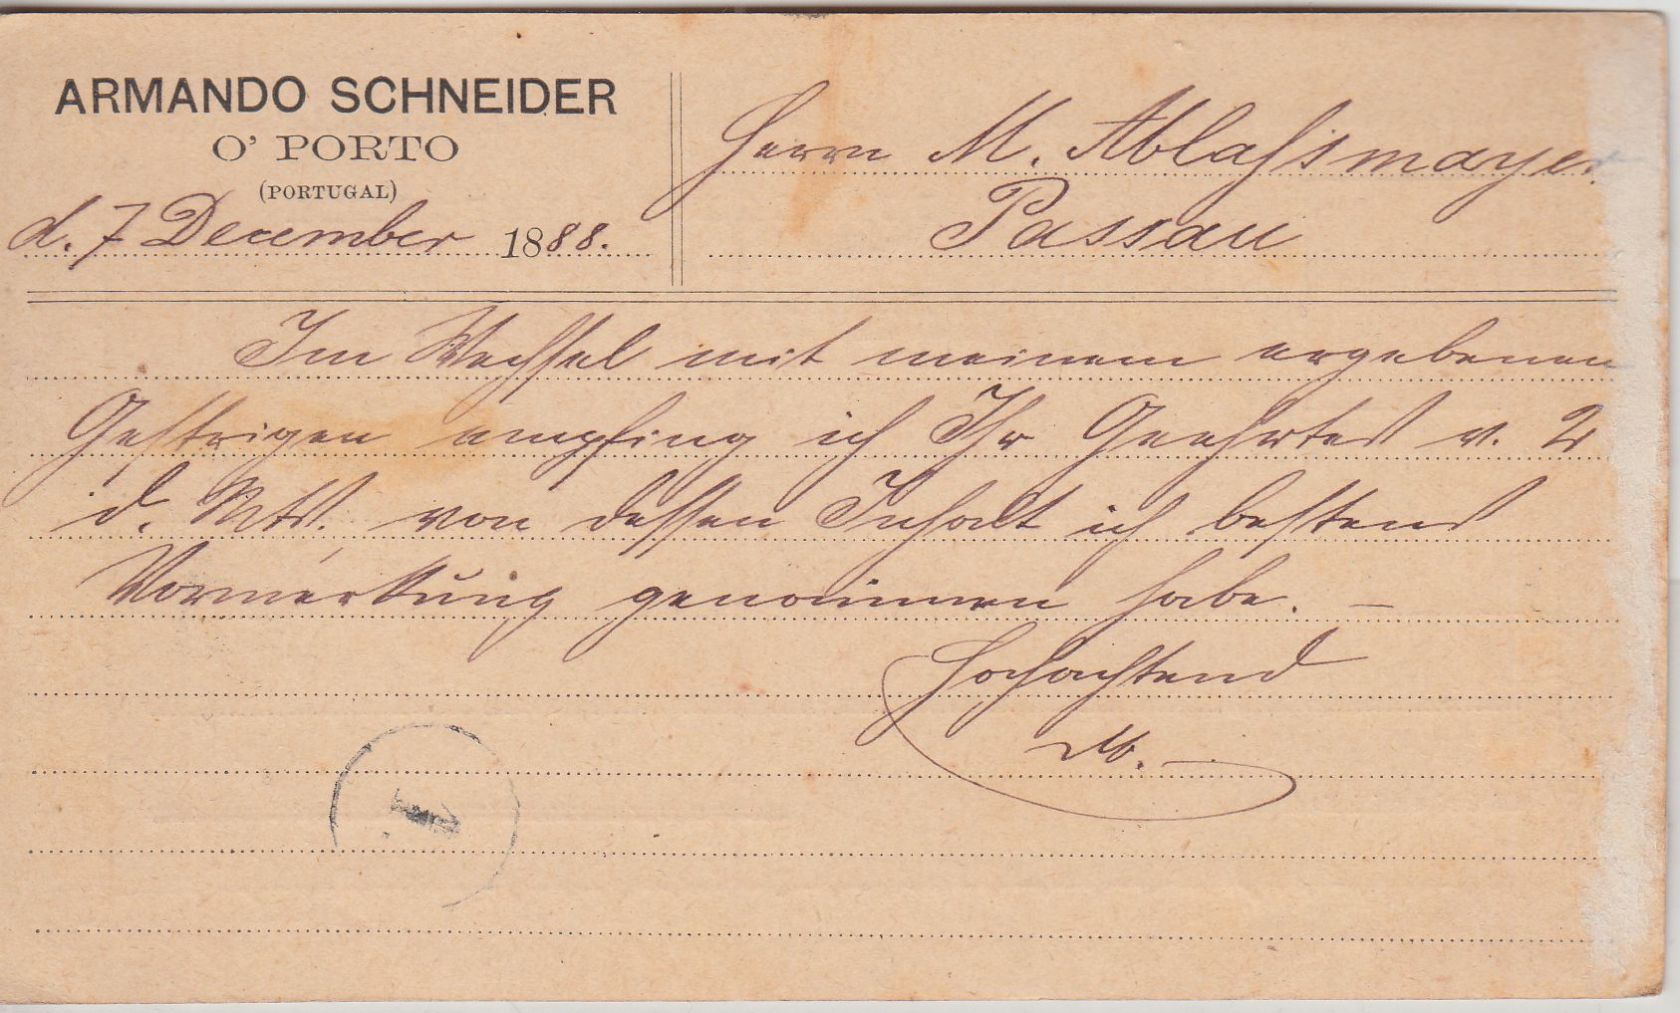 ARMANDO SCHNEIDER
O' PORTO
(PORTUGAL)
d. 7 December 1888.
Herrn M. Ablassmayer
Passau
Im Wechsel mit meinem ergebenen
Gestrigen empfing ich Ihr Geehrtes v. 2
d. Mts. von dessen Inhalt ich bestens
Vormerkung genommen habe. –
Hochachtend